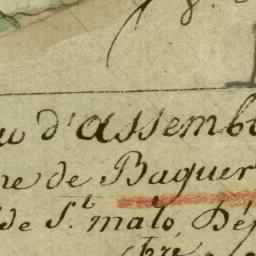 8.
u d'assemb
ne de Baguer
de S.t malo, Dép
bre